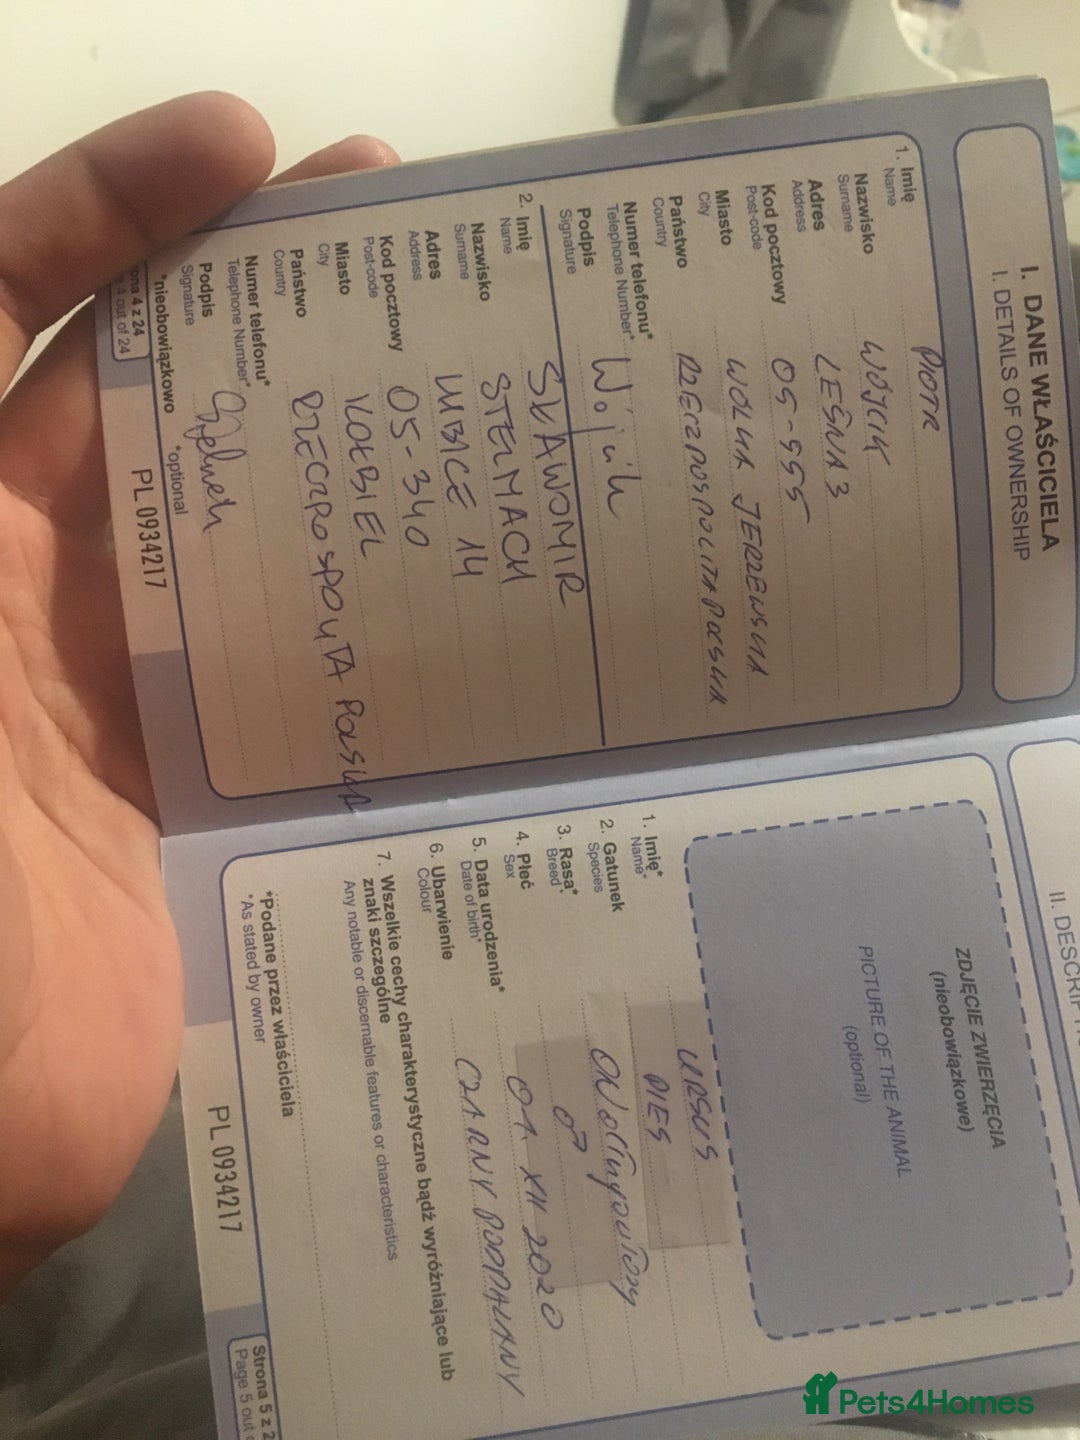 I. DANE WŁAŚCICIELA
I. DETAILS OF OWNERSHIP
1. Imię PIOTR
Name
Nazwisko WÓJCIK
Surname
Adres LEŚNA 3
Address
Kod pocztowy 05-555
Post-code
Miasto WOLKA JERZEWSKA
City
Państwo RZECZPOSPOLITA POLSKA
Country
Numer telefonu*
Telephone Number*
Podpis Wójcik
Signature
2. Imię SŁAWOMIR
Name
Nazwisko STELMACH
Surname
Adres LUBICE 14
Address
Kod pocztowy 05-340
Post-code
Miasto KOŁBIEL
City
Państwo RZECZPOSPOLITA POLSKA
Country
Numer telefonu*
Telephone Number*
Podpis
Signature
*nieobowiązkowo *optional
ona 4 z 24
4 out of 24
PL 0934217
II. DESCRIPT
ZDJĘCIE ZWIERZĘCIA
(nieobowiązkowe)
PICTURE OF THE ANIMAL
(optional)
1. Imię* URSUS
Name*
2. Gatunek PIES
Species
3. Rasa* OWOCINYOWIONY
Breed*
4. Płeć ♂
Sex
5. Data urodzenia* 01 XII 2020
Date of birth*
6. Ubarwienie CZARNY PODPALANY
Colour
7. Wszelkie cechy charakterystyczne bądź wyróżniające lub
znaki szczególne
Any notable or discernable features or characteristics
*Podane przez właściciela
*As stated by owner
PL 0934217
Strona 5 z 2
Page 5 out
Pets4Homes